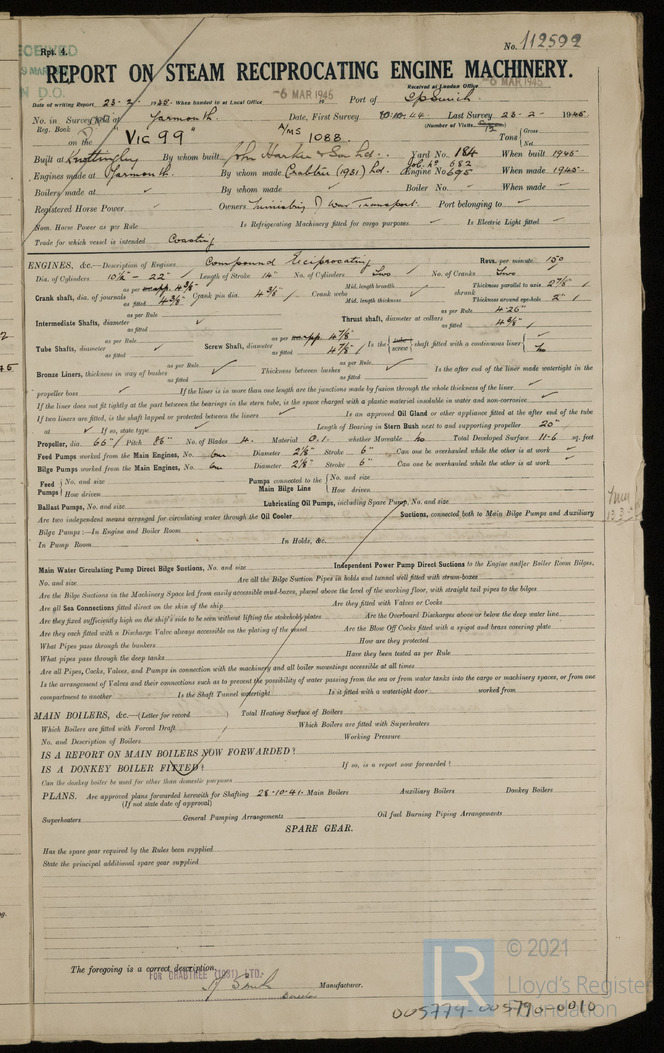 Rpt. 4.
No. 112592
REPORT ON STEAM RECIPROCATING ENGINE MACHINERY.
Received at London Office
-6 MAR 1945
Date of writing Report 23-2-1945 When handed in at Local Office -6 MAR 1945 Port of Ipswich.
No. in Survey held at Yarmouth. Date, First Survey 20-10-44 Last Survey 23-2-1945
Reg. Book (Number of Visits 12)
on the "VIC 99" 1088 Tons { Gross Net
Built at By whom built John Harker & Son Ltd. Yard No. 184 When built 1945
Job. No 682
Engines made at Yarmouth. By whom made Crabtree (1931) Ltd. Engine No 695 When made 1945
Boilers made at By whom made Boiler No. When made
Registered Horse Power Owners Ministry of War Transport. Port belonging to
Nom. Horse Power as per Rule Is Refrigerating Machinery fitted for cargo purposes Is Electric Light fitted
Trade for which vessel is intended Coasting
ENGINES, &c.—Description of Engines Compound Reciprocating Revs. per minute 150
Dia. of Cylinders 10½" - 22" Length of Stroke 14" No. of Cylinders Two No. of Cranks Two
Crank shaft, dia. of journals as per Rule 4⅜" as fitted 4⅜" Crank pin dia. 4⅜" Crank webs Mid. length breadth Mid. length thickness shrunk Thickness parallel to axis 2⅞" Thickness around eye-hole 2"
Intermediate Shafts, diameter as per Rule as fitted Thrust shaft, diameter at collars as per Rule 4.26" as fitted 4⅜"
Tube Shafts, diameter as per Rule as fitted Screw Shaft, diameter as per 4⅞" as fitted 4⅞" Is the { tube screw } shaft fitted with a continuous liner { No
Bronze Liners, thickness in way of bushes as per Rule as fitted Thickness between bushes as per Rule as fitted Is the after end of the liner made watertight in the
propeller boss If the liner is in more than one length are the junctions made by fusion through the whole thickness of the liner
If the liner does not fit tightly at the part between the bearings in the stern tube, is the space charged with a plastic material insoluble in water and non-corrosive
If two liners are fitted, is the shaft lapped or protected between the liners Is an approved Oil Gland or other appliance fitted at the after end of the tube
at If so, state type Length of Bearing in Stern Bush next to and supporting propeller 20"
Propeller, dia. 66" Pitch 86" No. of Blades 4. Material C.I. whether Moveable No Total Developed Surface 11-6 sq. feet
Feed Pumps worked from the Main Engines, No. One Diameter 2⅛" Stroke 6" Can one be overhauled while the other is at work
Bilge Pumps worked from the Main Engines, No. One Diameter 2⅛" Stroke 6" Can one be overhauled while the other is at work
Feed Pumps { No. and size How driven Pumps connected to the Main Bilge Line { No. and size How driven
Ballast Pumps, No. and size Lubricating Oil Pumps, including Spare Pump, No. and size
Are two independent means arranged for circulating water through the Oil Cooler Suctions, connected both to Main Bilge Pumps and Auxiliary
Bilge Pumps:—In Engine and Boiler Room
In Pump Room In Holds, &c.
Main Water Circulating Pump Direct Bilge Suctions, No. and size Independent Power Pump Direct Suctions to the Engine and/or Boiler Room Bilges,
No. and size Are all the Bilge Suction Pipes in holds and tunnel well fitted with strum-boxes
Are the Bilge Suctions in the Machinery Space led from easily accessible mud-boxes, placed above the level of the working floor, with straight tail pipes to the bilges
Are all Sea Connections fitted direct on the skin of the ship Are they fitted with Valves or Cocks
Are they fixed sufficiently high on the ship's side to be seen without lifting the stokehold plates Are the Overboard Discharges above or below the deep water line
Are they each fitted with a Discharge Valve always accessible on the plating of the vessel Are the Blow Off Cocks fitted with a spigot and brass covering plate
What Pipes pass through the bunkers How are they protected
What pipes pass through the deep tanks Have they been tested as per Rule
Are all Pipes, Cocks, Valves, and Pumps in connection with the machinery and all boiler mountings accessible at all times
Is the arrangement of Valves and their connections such as to prevent the possibility of water passing from the sea or from water tanks into the cargo or machinery spaces, or from one
compartment to another Is the Shaft Tunnel watertight Is it fitted with a watertight door worked from
MAIN BOILERS, &c.—(Letter for record ) Total Heating Surface of Boilers
Which Boilers are fitted with Forced Draft Which Boilers are fitted with Superheaters
No. and Description of Boilers Working Pressure
IS A REPORT ON MAIN BOILERS NOW FORWARDED?
IS A DONKEY BOILER FITTED? If so, is a report now forwarded?
Can the donkey boiler be used for other than domestic purposes
PLANS. Are approved plans forwarded herewith for Shafting 28-10-41. Main Boilers Auxiliary Boilers Donkey Boilers
(If not state date of approval)
Superheaters General Pumping Arrangements Oil fuel Burning Piping Arrangements
SPARE GEAR.
Has the spare gear required by the Rules been supplied
State the principal additional spare gear supplied
The foregoing is a correct description,
FOR CRABTREE (1931) LTD.
Manufacturer.
Director
© 2021
Lloyd's Register
Foundation
005779-005790-0010